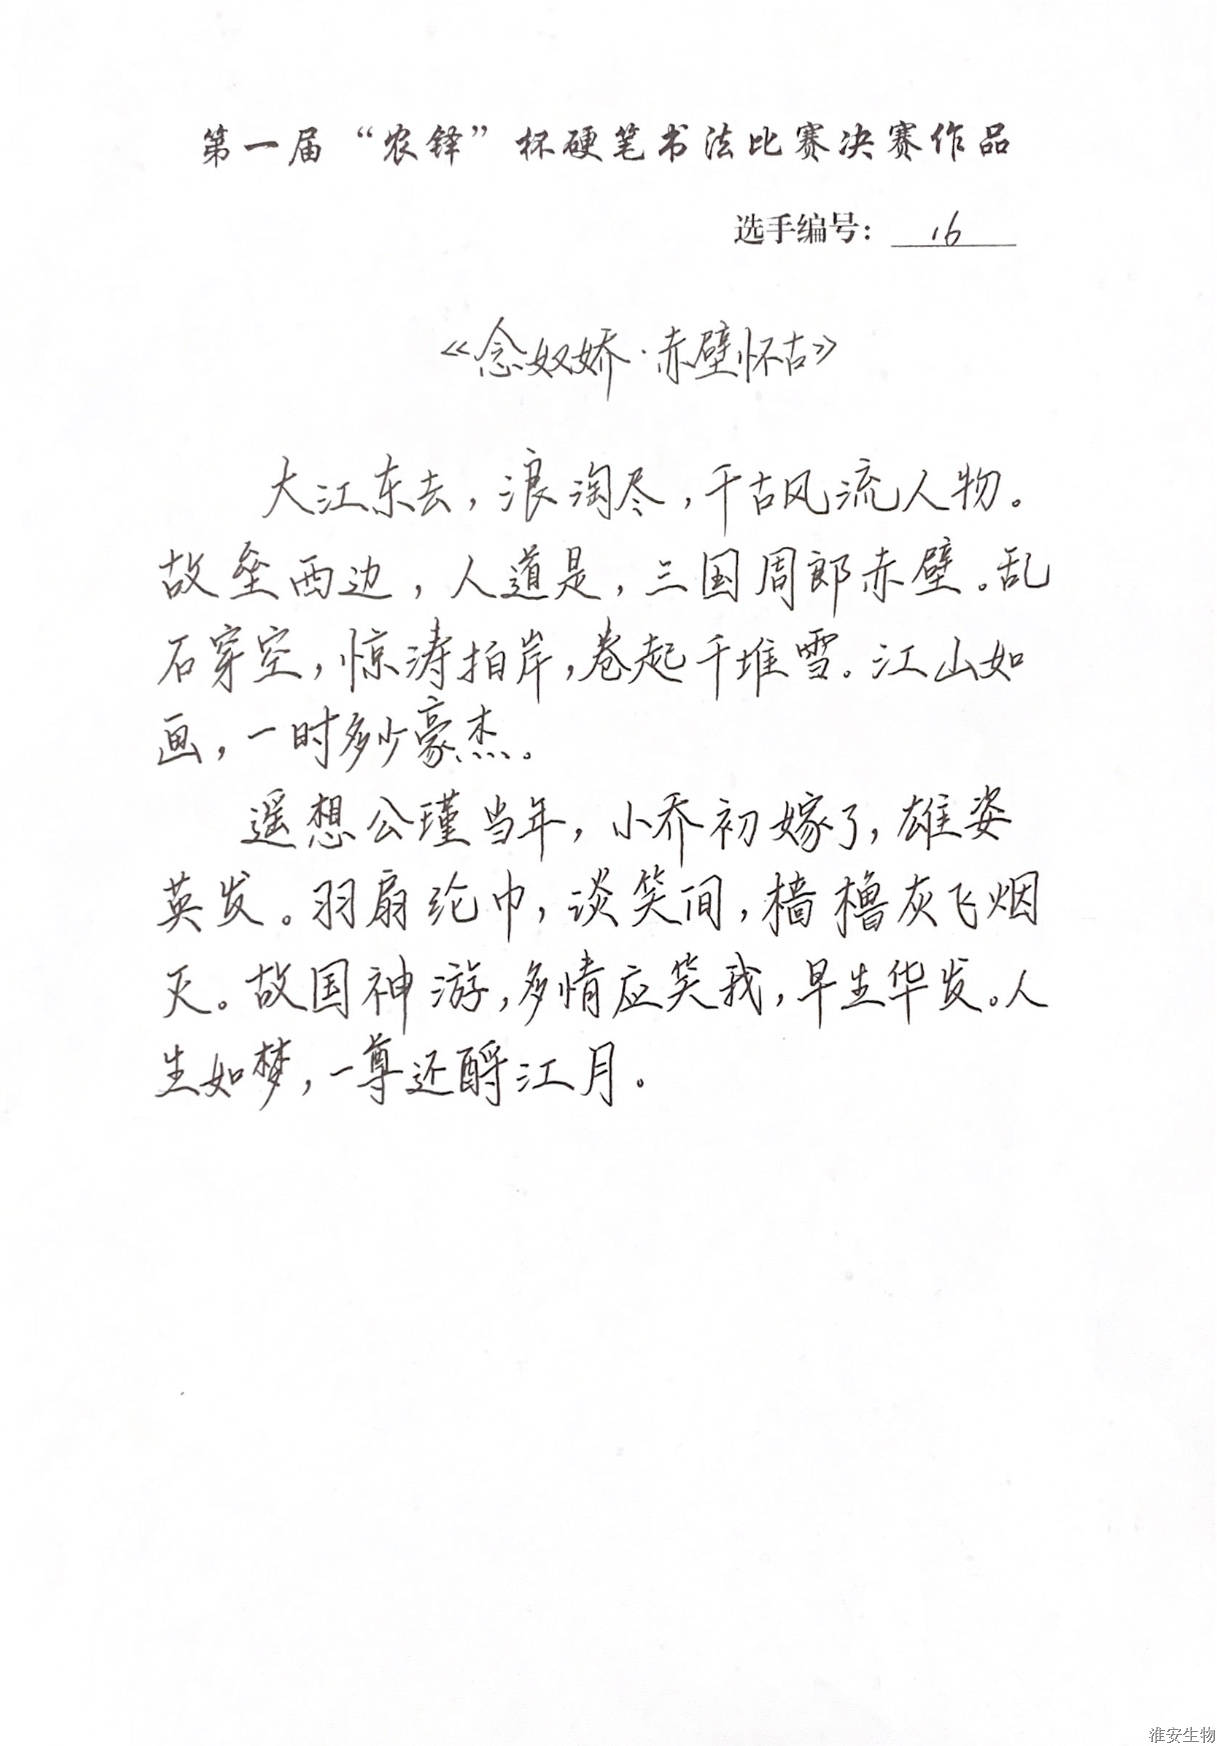 第一届“农铎”杯硬笔书法比赛决赛作品
选手编号：16
《念奴娇·赤壁怀古》
大江东去，浪淘尽，千古风流人物。
故垒西边，人道是，三国周郎赤壁。乱
石穿空，惊涛拍岸，卷起千堆雪。江山如
画，一时多少豪杰。
遥想公瑾当年，小乔初嫁了，雄姿
英发。羽扇纶巾，谈笑间，樯橹灰飞烟
灭。故国神游，多情应笑我，早生华发。人
生如梦，一尊还酹江月。
淮安生物